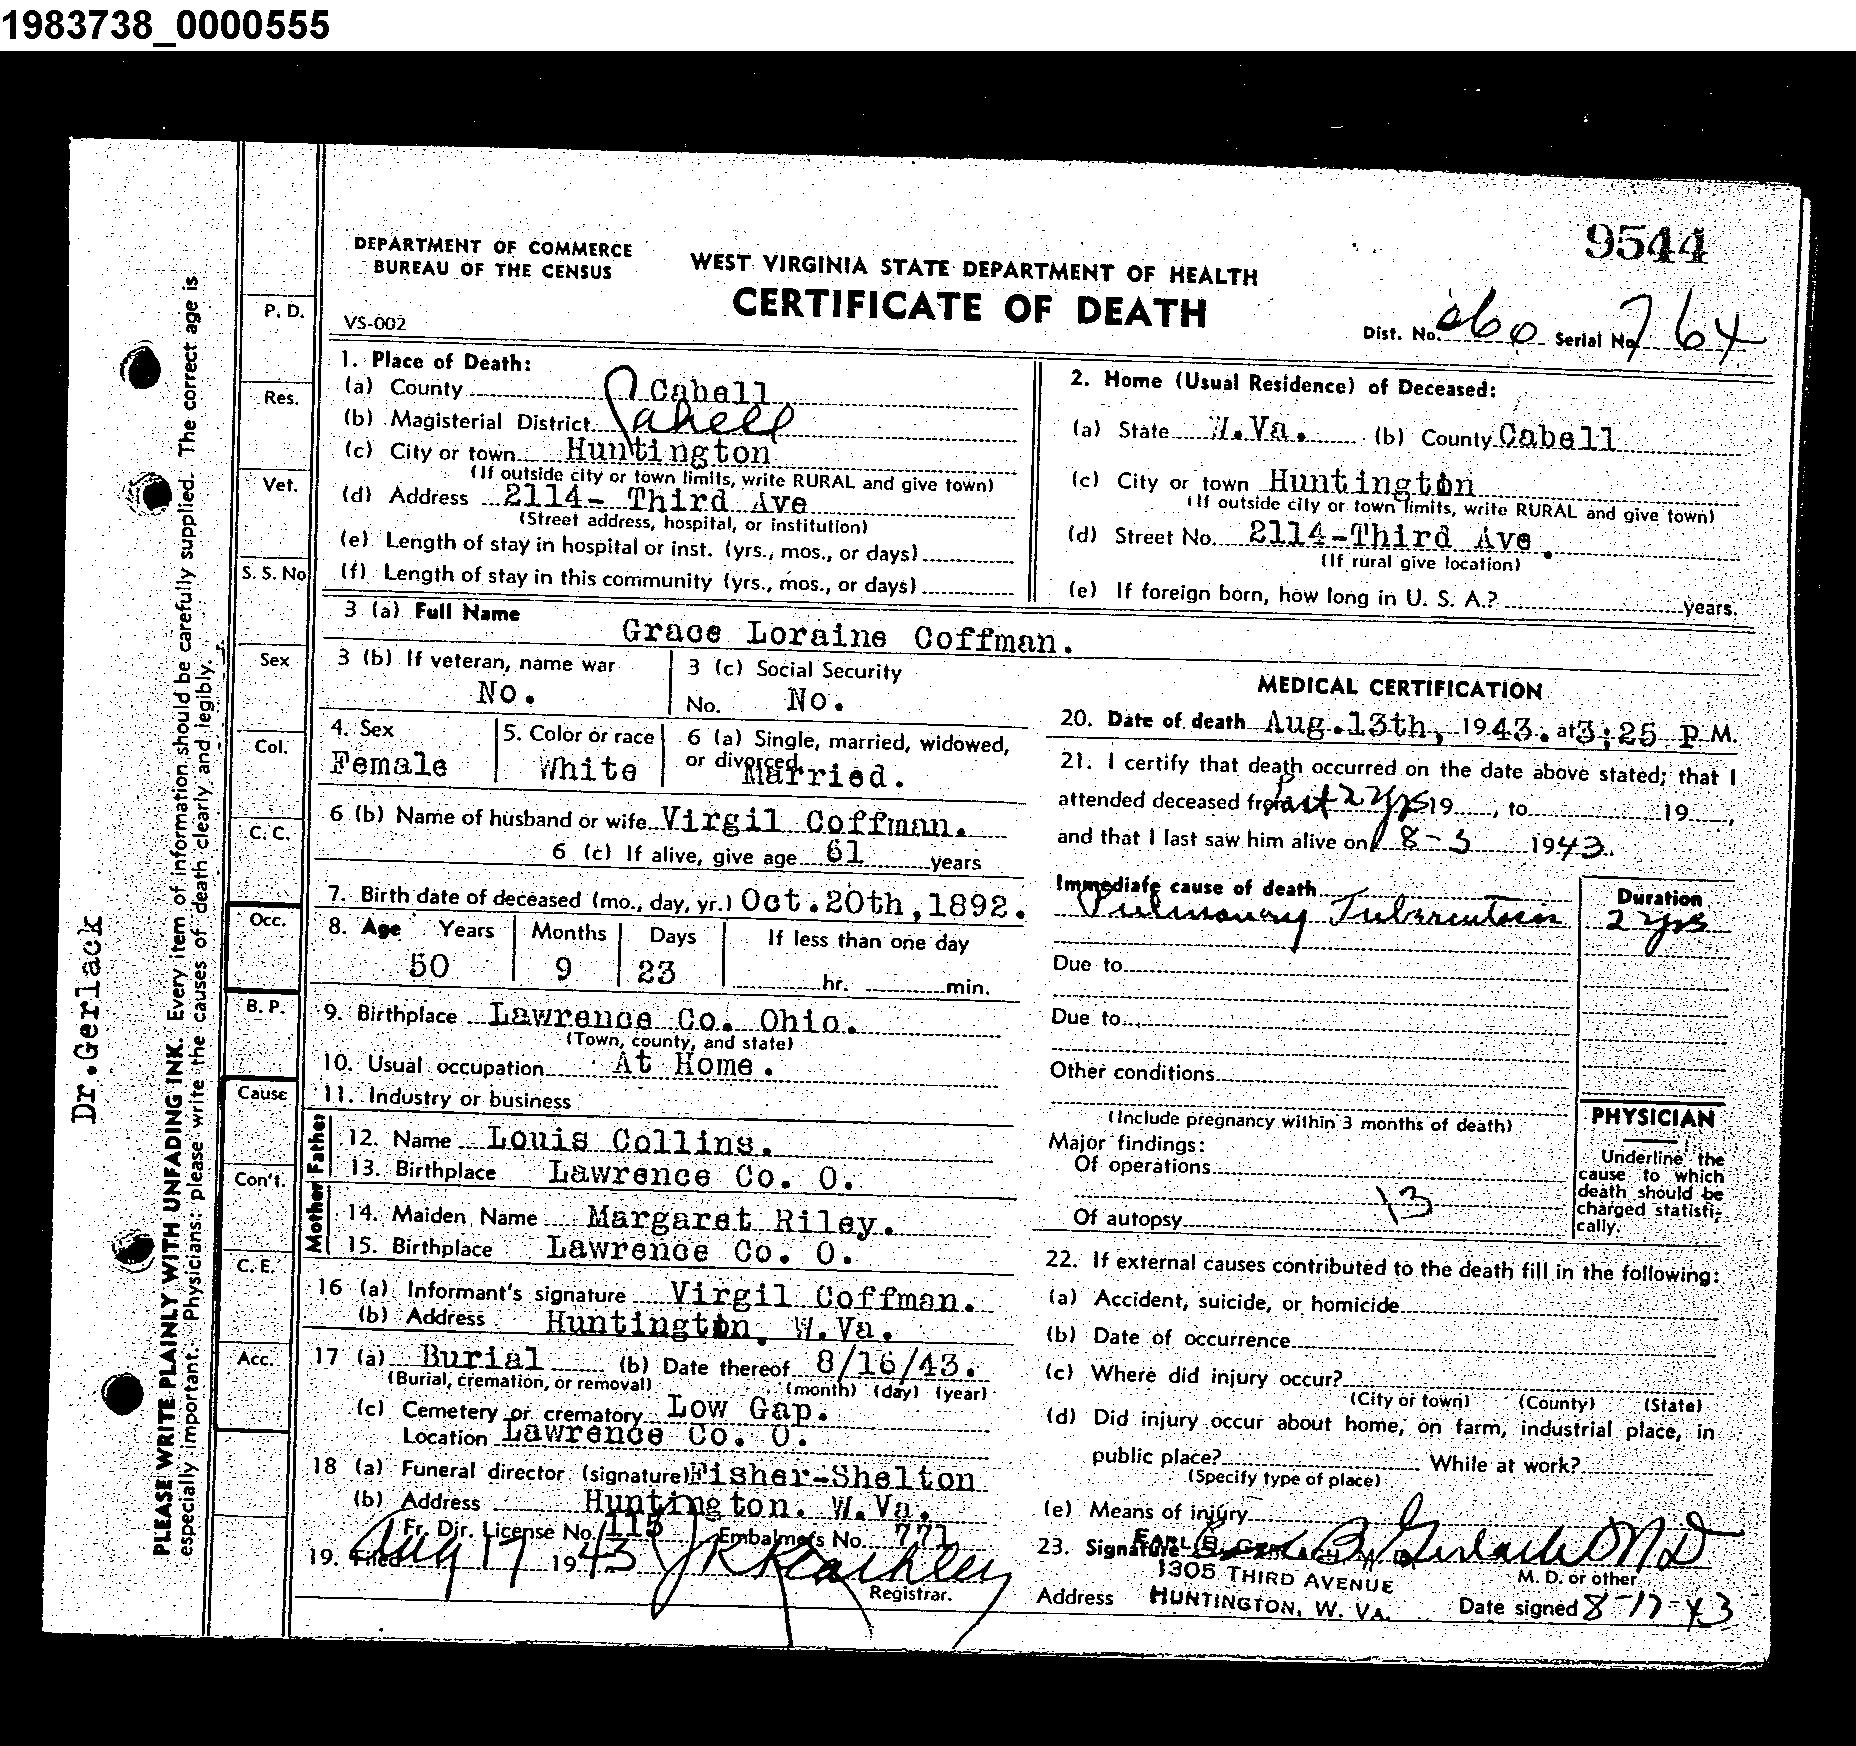 1983738_0000555
9544
DEPARTMENT OF COMMERCE
BUREAU OF THE CENSUS
WEST VIRGINIA STATE DEPARTMENT OF HEALTH
CERTIFICATE OF DEATH
VS-002
Dist. No. 060 Serial No. 764
1. Place of Death:
(a) County Cabell
(b) Magisterial District Cabell
(c) City or town Huntington
(If outside city or town limits, write RURAL and give town)
(d) Address 2114- Third Ave
(Street address, hospital, or institution)
(e) Length of stay in hospital or inst. (yrs., mos., or days)
(f) Length of stay in this community (yrs., mos., or days)
2. Home (Usual Residence) of Deceased:
(a) State W.Va. (b) County Cabell
(c) City or town Huntington
(If outside city or town limits, write RURAL and give town)
(d) Street No. 2114-Third Ave.
(If rural give location)
(e) If foreign born, how long in U. S. A.? years.
3 (a) Full Name Grace Loraine Coffman.
3 (b) If veteran, name war No.
3 (c) Social Security No. No.
4. Sex Female
5. Color or race White
6 (a) Single, married, widowed, or divorced Married.
6 (b) Name of husband or wife Virgil Coffman.
6 (c) If alive, give age 61 years
7. Birth date of deceased (mo., day, yr.) Oct.20th,1892.
8. Age Years Months Days If less than one day
50 9 23 hr. min.
9. Birthplace Lawrence Co. Ohio.
(Town, county, and state)
10. Usual occupation At Home.
11. Industry or business
Father
12. Name Louis Collins.
13. Birthplace Lawrence Co. O.
Mother
14. Maiden Name Margaret Riley.
15. Birthplace Lawrence Co. O.
16 (a) Informant's signature Virgil Coffman.
(b) Address Huntington, W.Va.
17 (a) Burial (b) Date thereof 8/16/43.
(Burial, cremation, or removal) (month) (day) (year)
(c) Cemetery or crematory Low Gap.
Location Lawrence Co. O.
18 (a) Funeral director (signature) Fisher-Shelton
(b) Address Huntington. W.Va.
Fr. Dir. License No. 115 Embalmers No. 771
19. Filed Aug 17 1943
Registrar.
MEDICAL CERTIFICATION
20. Date of death Aug.13th, 1943. at 3:25 P M.
21. I certify that death occurred on the date above stated; that I
attended deceased from Past 2 yrs 19 , to 19 ,
and that I last saw him alive on 8-3 1943.
Immediate cause of death
Pulmonary Tuberculosis
Duration
2 yrs
Due to
Due to
Other conditions
(Include pregnancy within 3 months of death)
Major findings:
Of operations
13
Of autopsy
PHYSICIAN
Underline the
cause to which
death should be
charged statisti-
cally.
22. If external causes contributed to the death fill in the following:
(a) Accident, suicide, or homicide
(b) Date of occurrence
(c) Where did injury occur?
(City or town) (County) (State)
(d) Did injury occur about home, on farm, industrial place, in
public place? While at work?
(Specify type of place)
(e) Means of injury
23. Signature Earl B. Gerlach MD
M. D. or other
1305 THIRD AVENUE
Address HUNTINGTON, W. VA. Date signed 8-17-43
P. D.
Res.
Vet.
S. S. No
Sex
Col.
C. C.
Occ.
B. P.
Cause
Con't.
C. E.
Acc.
PLEASE WRITE PLAINLY WITH UNFADING INK. Every item of information should be carefully supplied. The correct age is
especially important. Physicians: please write the causes of death clearly and legibly.
Dr.Gerlack